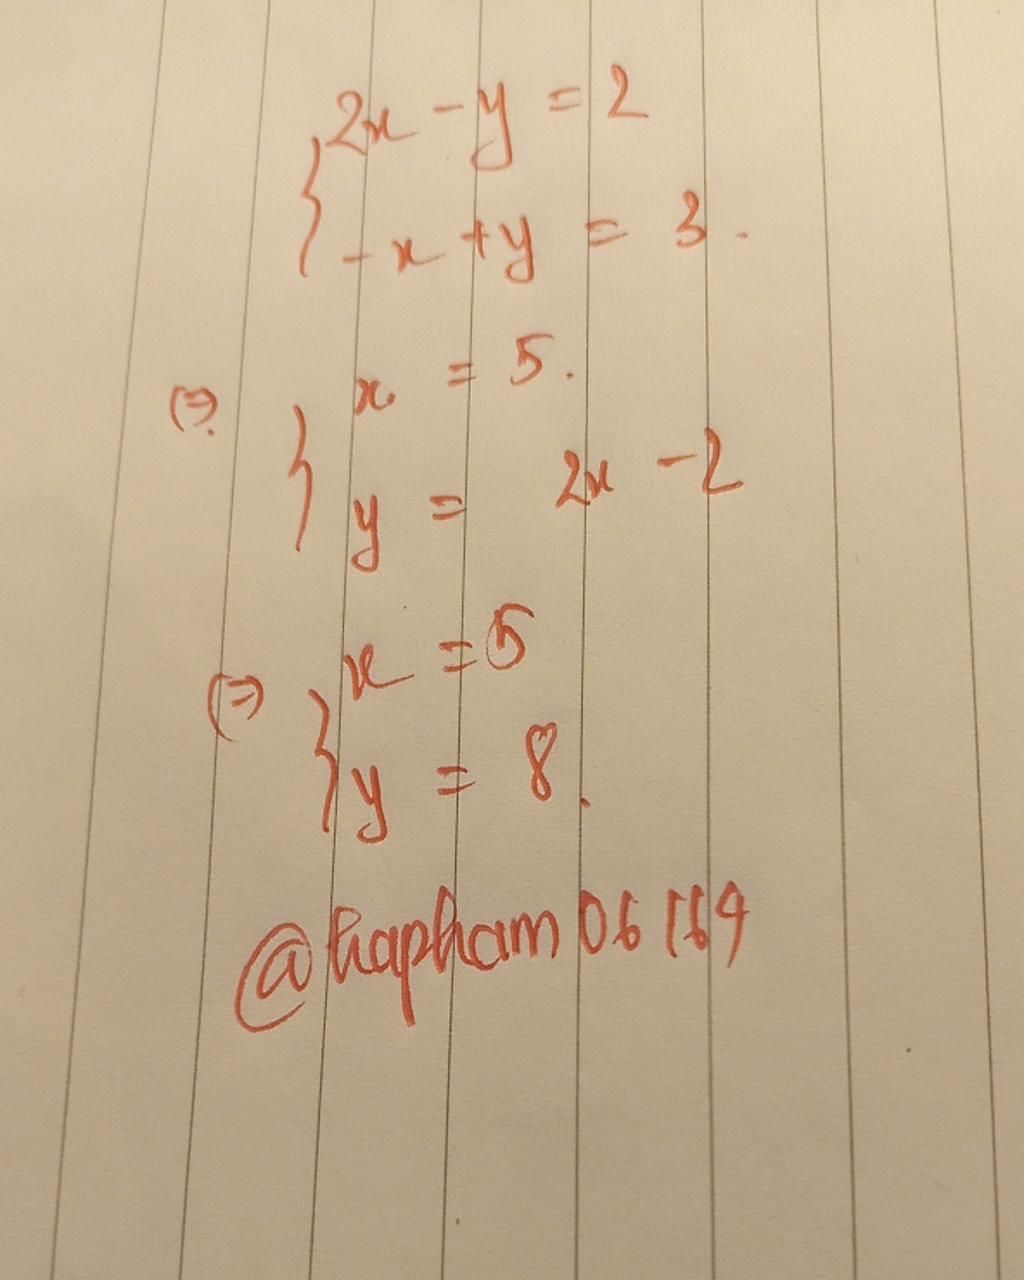 { 2x - y = 2
-x + y = 3.
(=) { x = 5.
y = 2x - 2
(=) { x = 5
y = 8.
@hapham06169